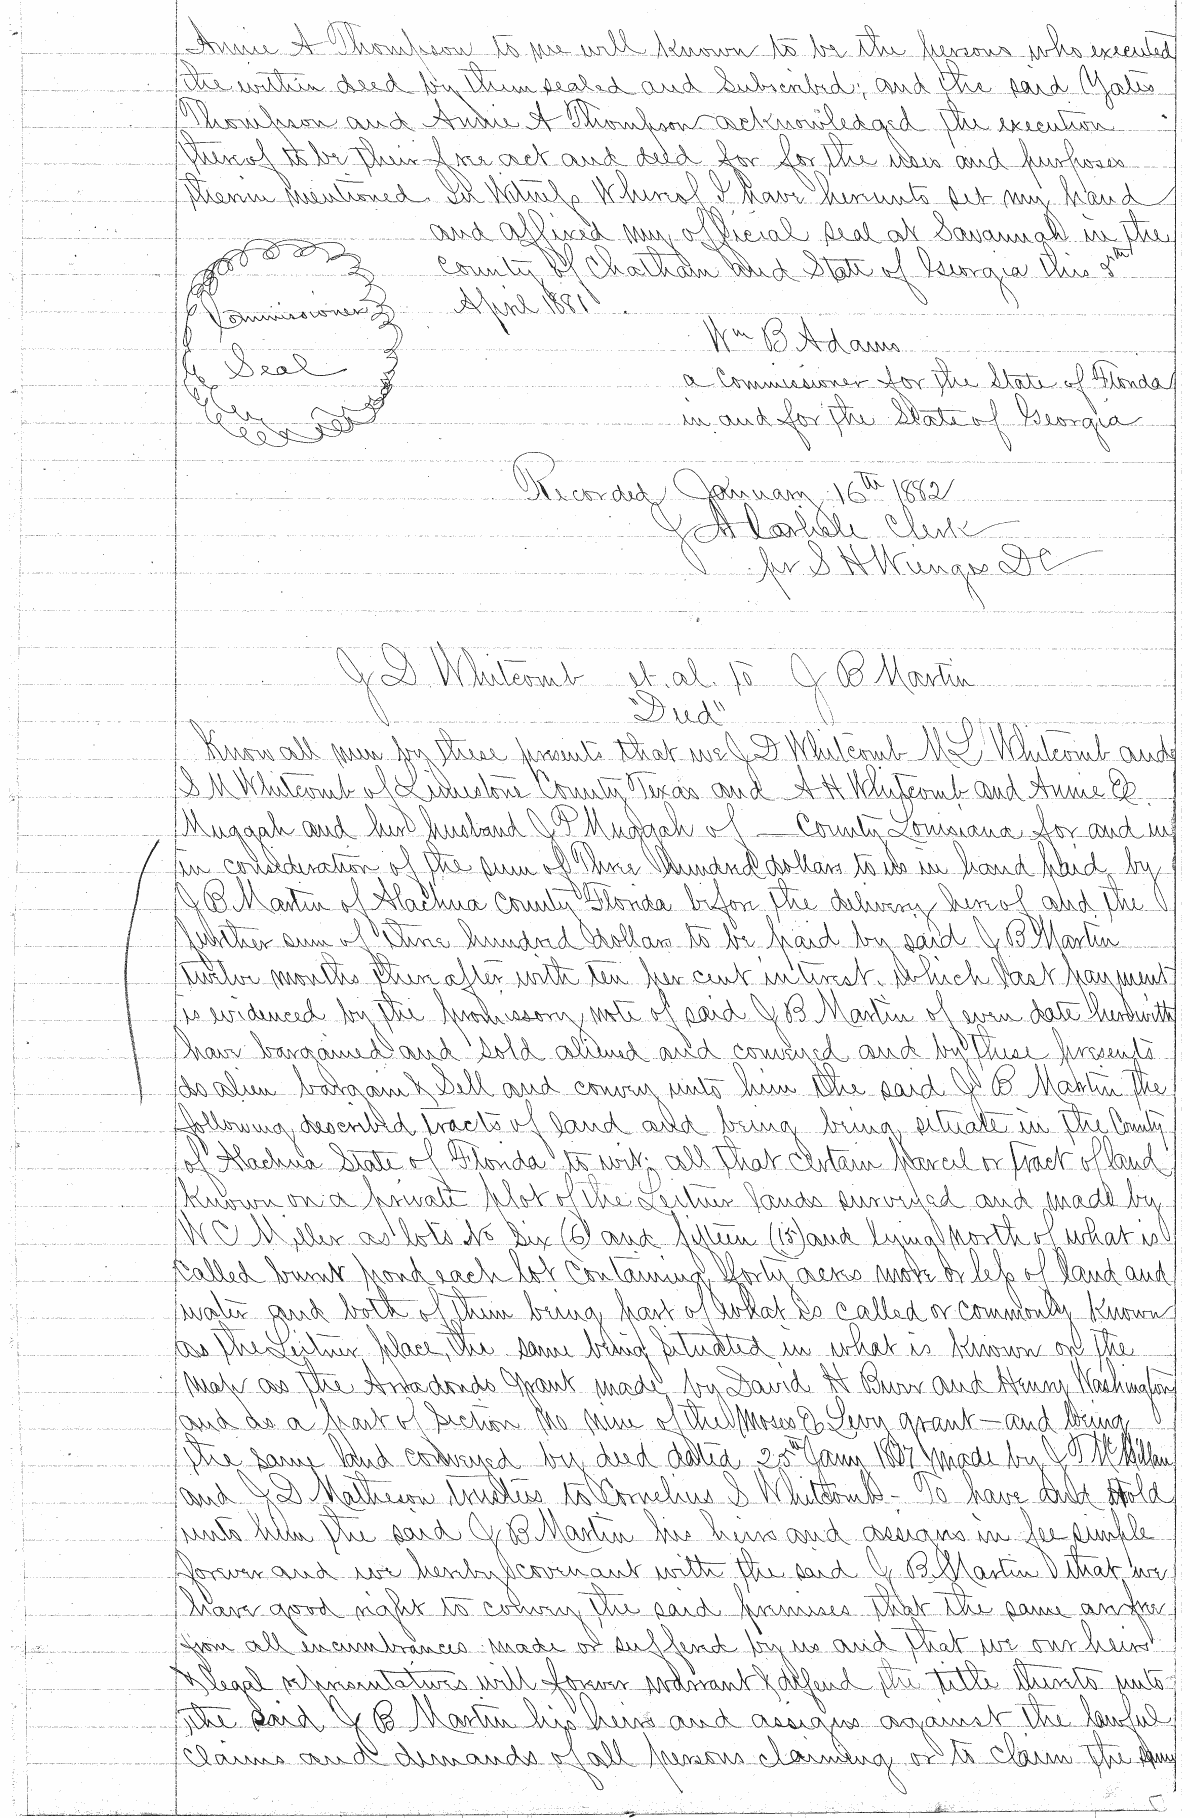 Annie A Thompson to me will known to be the persons who executed
the within deed by them sealed and Subscribed; and the said Yates
Thompson and Annie A Thompson acknowledged the execution
thereof to be their free act and deed for for the uses and purposes
therein mentioned. In Witness Whereof I have hereunto set my hand
and affixed my official seal at Savannah in the
County of Chatham and State of Georgia this 5th
April 1881.
Commissioner
Seal
Wm B Adams
a Commissioner for the State of Florida
in and for the State of Georgia
Recorded January 16th 1882
J A Carlisle Clerk
pr S H Wienges DC
J D Whitcomb et. al. to J B Martin
"Deed"
Know all men by these presents that we J D Whitcomb M L Whitcomb and
S M Whitcomb of Limestone County Texas and A H Whitcomb and Annie E
Muggah and her husband J P Muggah of — County Louisiana for and in
in consideration of the sum of Three Hundred dollars to us in hand paid by
J B Martin of Alachua County Florida before the delivery hereof and the
further sum of three hundred dollars to be paid by said J B Martin
twelve months thereafter with ten per cent interest. Which last payment
is evidenced by the promissory note of said J B Martin of even date herewith
have bargained and sold aliened and conveyed and by these presents
do alien bargain & Sell and convey unto him the said J B Martin the
following described tracts of land and being being situate in the County
of Alachua State of Florida to wit; all that certain parcel or tract of land
known on a private plot of the Leitner lands surveyed and made by
W C Miller as lots No Six (6) and fifteen (15) and lying North of what is
called burnt pond each lot containing forty acres more or less of land and
water and both of them being part of what is called or commonly known
as the Leitner place, the same being situated in what is known on the
map as the Arradondo Grant made by David H Burr and Henry Washington
and as a part of Section No Nine of the Moses E Levy grant — and being
the same land conveyed by deed dated 25th Jany 1887 made by J T McMillan
and J D Matheson trustees to Cornelius S Whitcomb - To have and Hold
unto him the said J B Martin his heirs and assigns in fee simple
forever and we hereby covenant with the said J B Martin that we
have good right to convey the said premises that the same are free
from all encumbrances made or suffered by us and that we our heirs
& legal representatives will forever warrant & defend the title thereto unto
the said J B Martin his heirs and assigns against the lawful
claims and demands of all persons claiming or to claim the same